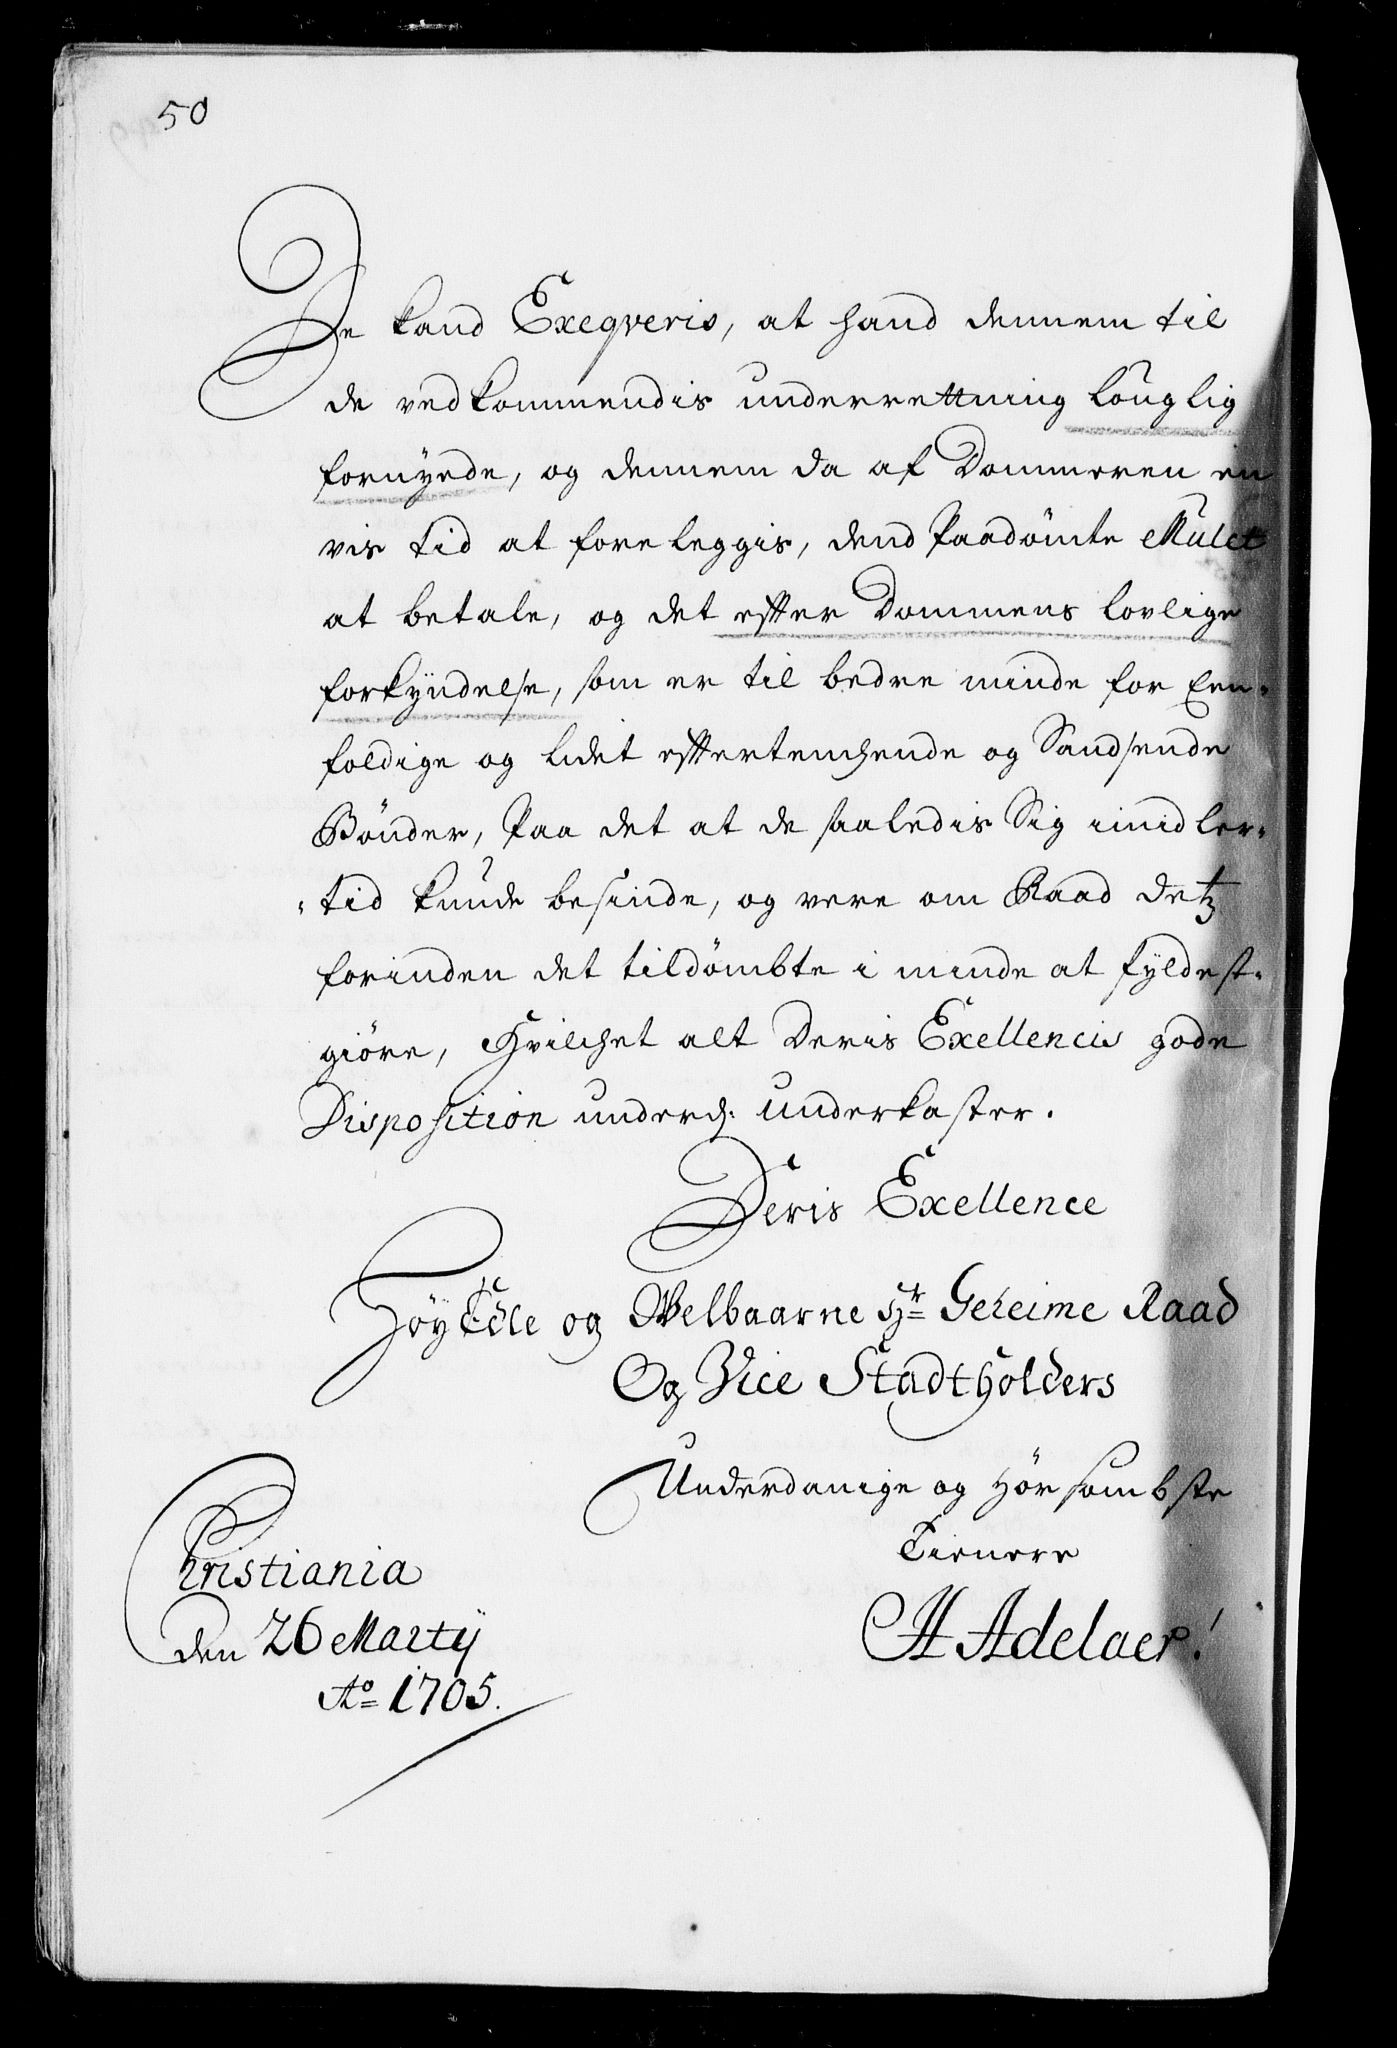 50
De kand Exeqveris, at hand dennem til
de vedkommendis underrettning louglig
fornyede, og dennem da af Dommeren en
vis tid at foreleggis, dend Paadömte Mulct
at betale, og det effter Dommens lovlige
forkyndelse, som er til bedre minde for Een-
foldige og lidet efftertenckende og Sandsende
Bönder, Paa det at de saaledis Sig imidler-
-tid kunde besinde, og vere om Raad detz
forinden det tildömbte i minde at fyldest-
giöre, Hvilchet alt Deris Exellencis gode
Disposition underd: underkaster.
Deris Exellence
HöyEdle og Welbaarne Hr Geheime Raad
Og Vice Stadtholders
Underdanige og Hörsombste
Tienere
H Adelaer
Christiania
den 26 Martij
Ao 1705.